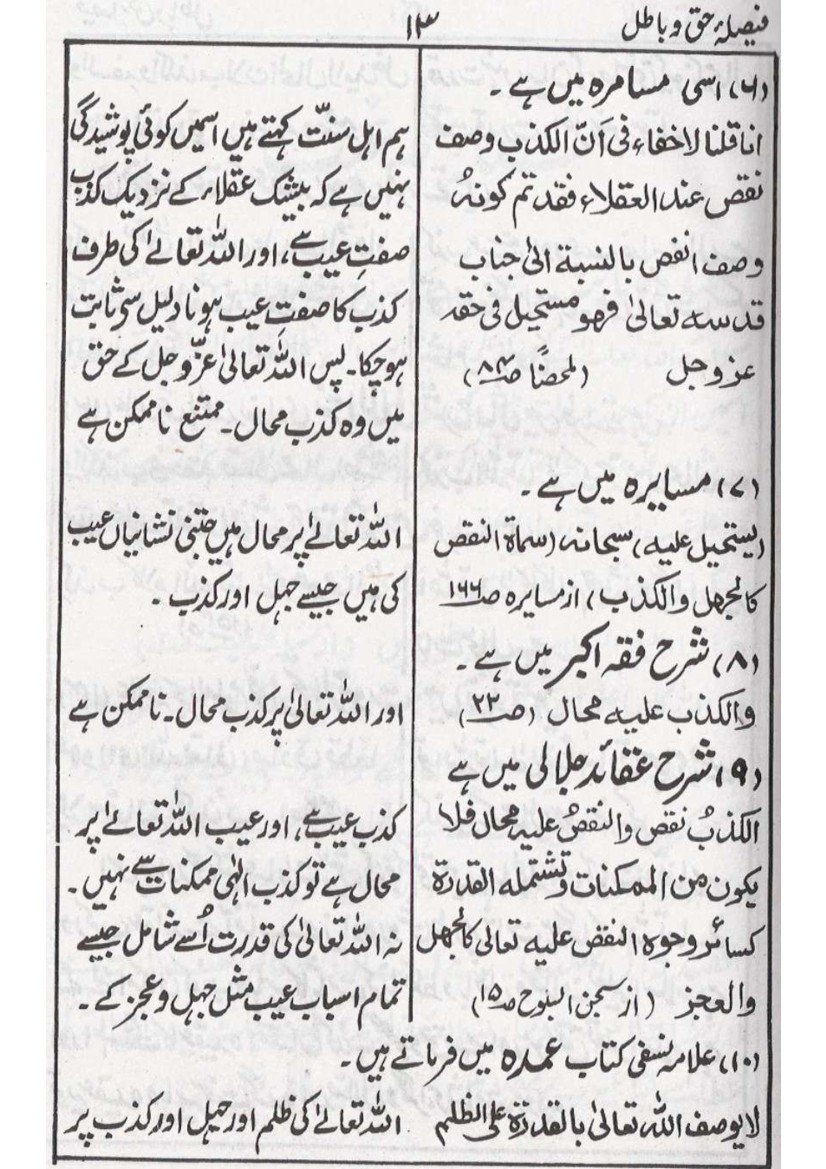 فیصلۂ حق و باطل
۱۳
(۶) اسی مسامرہ میں ہے۔
انا قلنا لاخفاء فی اَنّ الکذب وصف
نقص عند العقلاء فقد تم کونہُ
وصف انقص بالنسبة الیٰ جناب
قدسہ تعالیٰ فھو مستحیل فی حقہ
عزوجل (ملخصًا صـ۸۳)
ہم اھل سنّت کہتے ہیں اسمیں کوئی پوشیدگی
نہیں ہے کہ بیشک عقلاء کے نزدیک کذب
صفتِ عیب ہے، اور اللہ تعالےٰ کی طرف
کذب کا صفتِ عیب ہونا دلیل سے ثابت
ہو چکا۔ پس اللہ تعالیٰ عزّوجل کے حق
میں وہ کذب محال۔ ممتنع ناممکن ہے
(۷) مسایرہ میں ہے۔
(یستحیل علیہ) سبحانہ (سماة النقص
کالجھل والکذب) از مسایرہ صـ۱۶۶
اللہ تعالےٰ پر محال ہیں جتنی نشانیاں عیب
کی ہیں جیسے جہل اور کذب۔
(۸) شرح فقہ اکبر میں ہے۔
والکذب علیہ محال (صـ۲۲)
اور اللہ تعالیٰ پر کذب محال۔ ناممکن ہے
(۹) شرح عقائد جلالی میں ہے
الکذبُ نقص والنقصُ علیہ محال فلا
یکون من الممکنات وتشتملہ القدرة
کسائر وجوہ النقص علیہ تعالی کالجھل
والعجز (از سبحٰن السبوح صـ۱۵)
کذب عیب ہے، اور عیب اللہ تعالےٰ پر
محال ہے تو کذب الٰہی ممکنات سے نہیں۔
نہ اللہ تعالیٰ کی قدرت اُسے شامل جیسے
تمام اسباب عیب مثل جہل و عجز کے۔
(۱۰) علامہ نسفی کتاب عمدہ میں فرماتے ہیں۔
لایوصف اللہ تعالیٰ بالقدرة علی الظلم
اللہ تعالےٰ کی ظلم اور جہل اور کذب پر